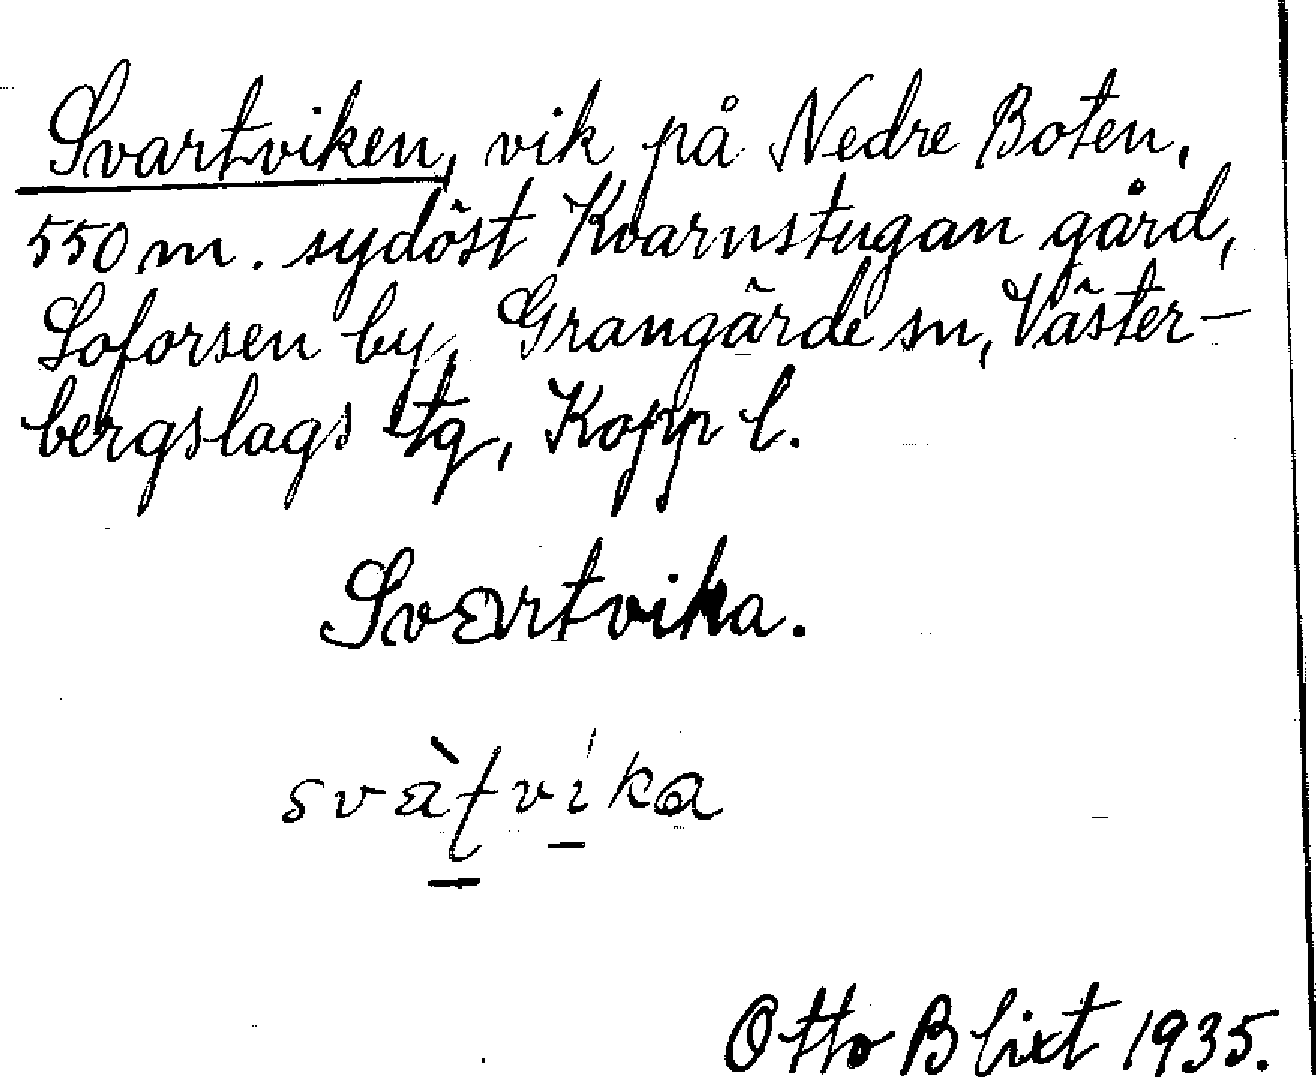 Svartviken, vik på Nedre Boten,
550 m. sydöst Kvarnstugan gård,
Loforsen by, Grangärde sn, Väster-
bergslags tg, Kopp l.
Svartvika.
Otto Blixt 1935.